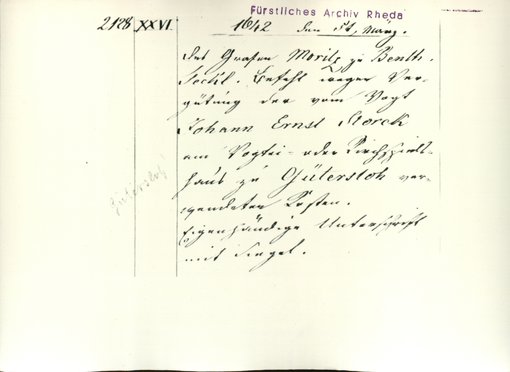 Fürstliches Archiv Rheda
2128 XXVI. 1642 den März.
Des Grafen Moritz zu Benth.
Teckl. Befehl wegen Ver-
gütung der vom Vogt
Johann Ernst Storck
am Vogtei- oder Kirchspiels-
haus zu Gütersloh ver-
wendeten Kosten.
Eigenhändige Unterschrift
mit Siegel.
Gütersloh